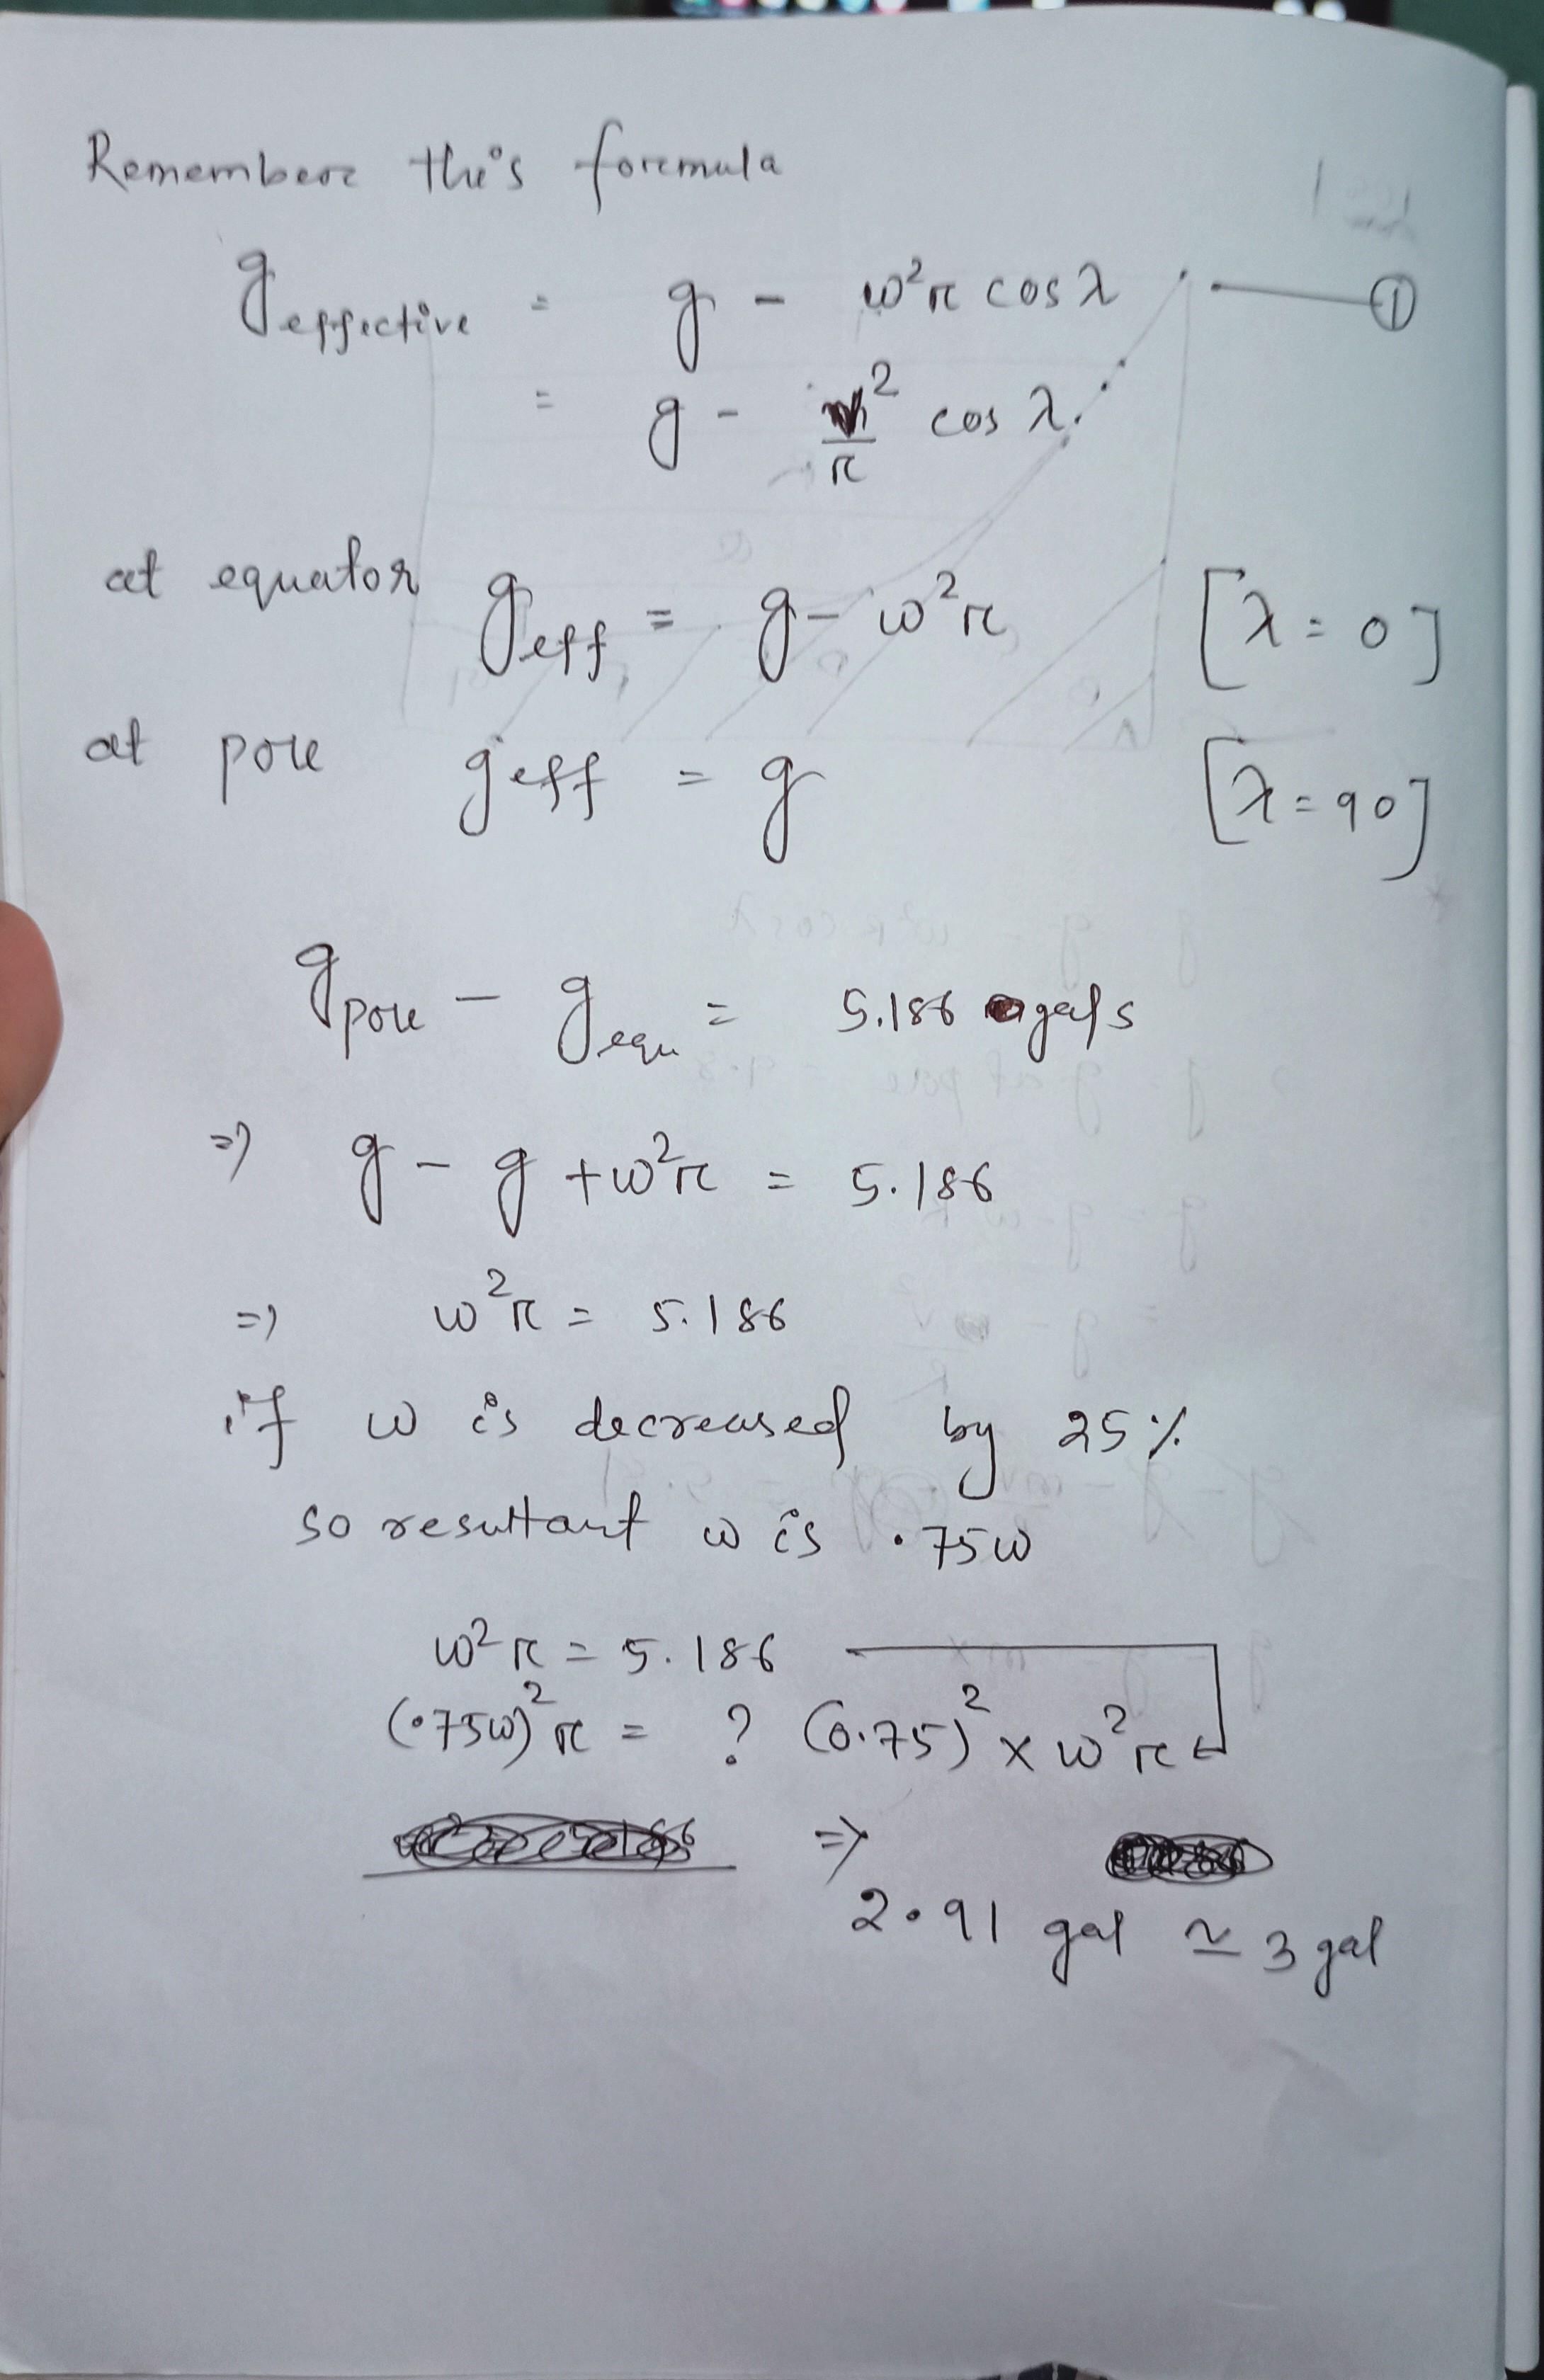 Remember this formula
g effective = g - ω²r cos λ ①
= g - v²/r cos λ.
at equator g eff = g - ω²r [λ = 0]
at pole g eff = g [λ = 90]
g pole - g equ = 5.186 gals
⇒ g - g + ω²r = 5.186
⇒ ω²r = 5.186
if ω is decreased by 25%
so resultant ω is .75ω
ω²r = 5.186
(.75ω)²r = ? (0.75)² × ω²r
⇒
2.91 gal ≃ 3 gal